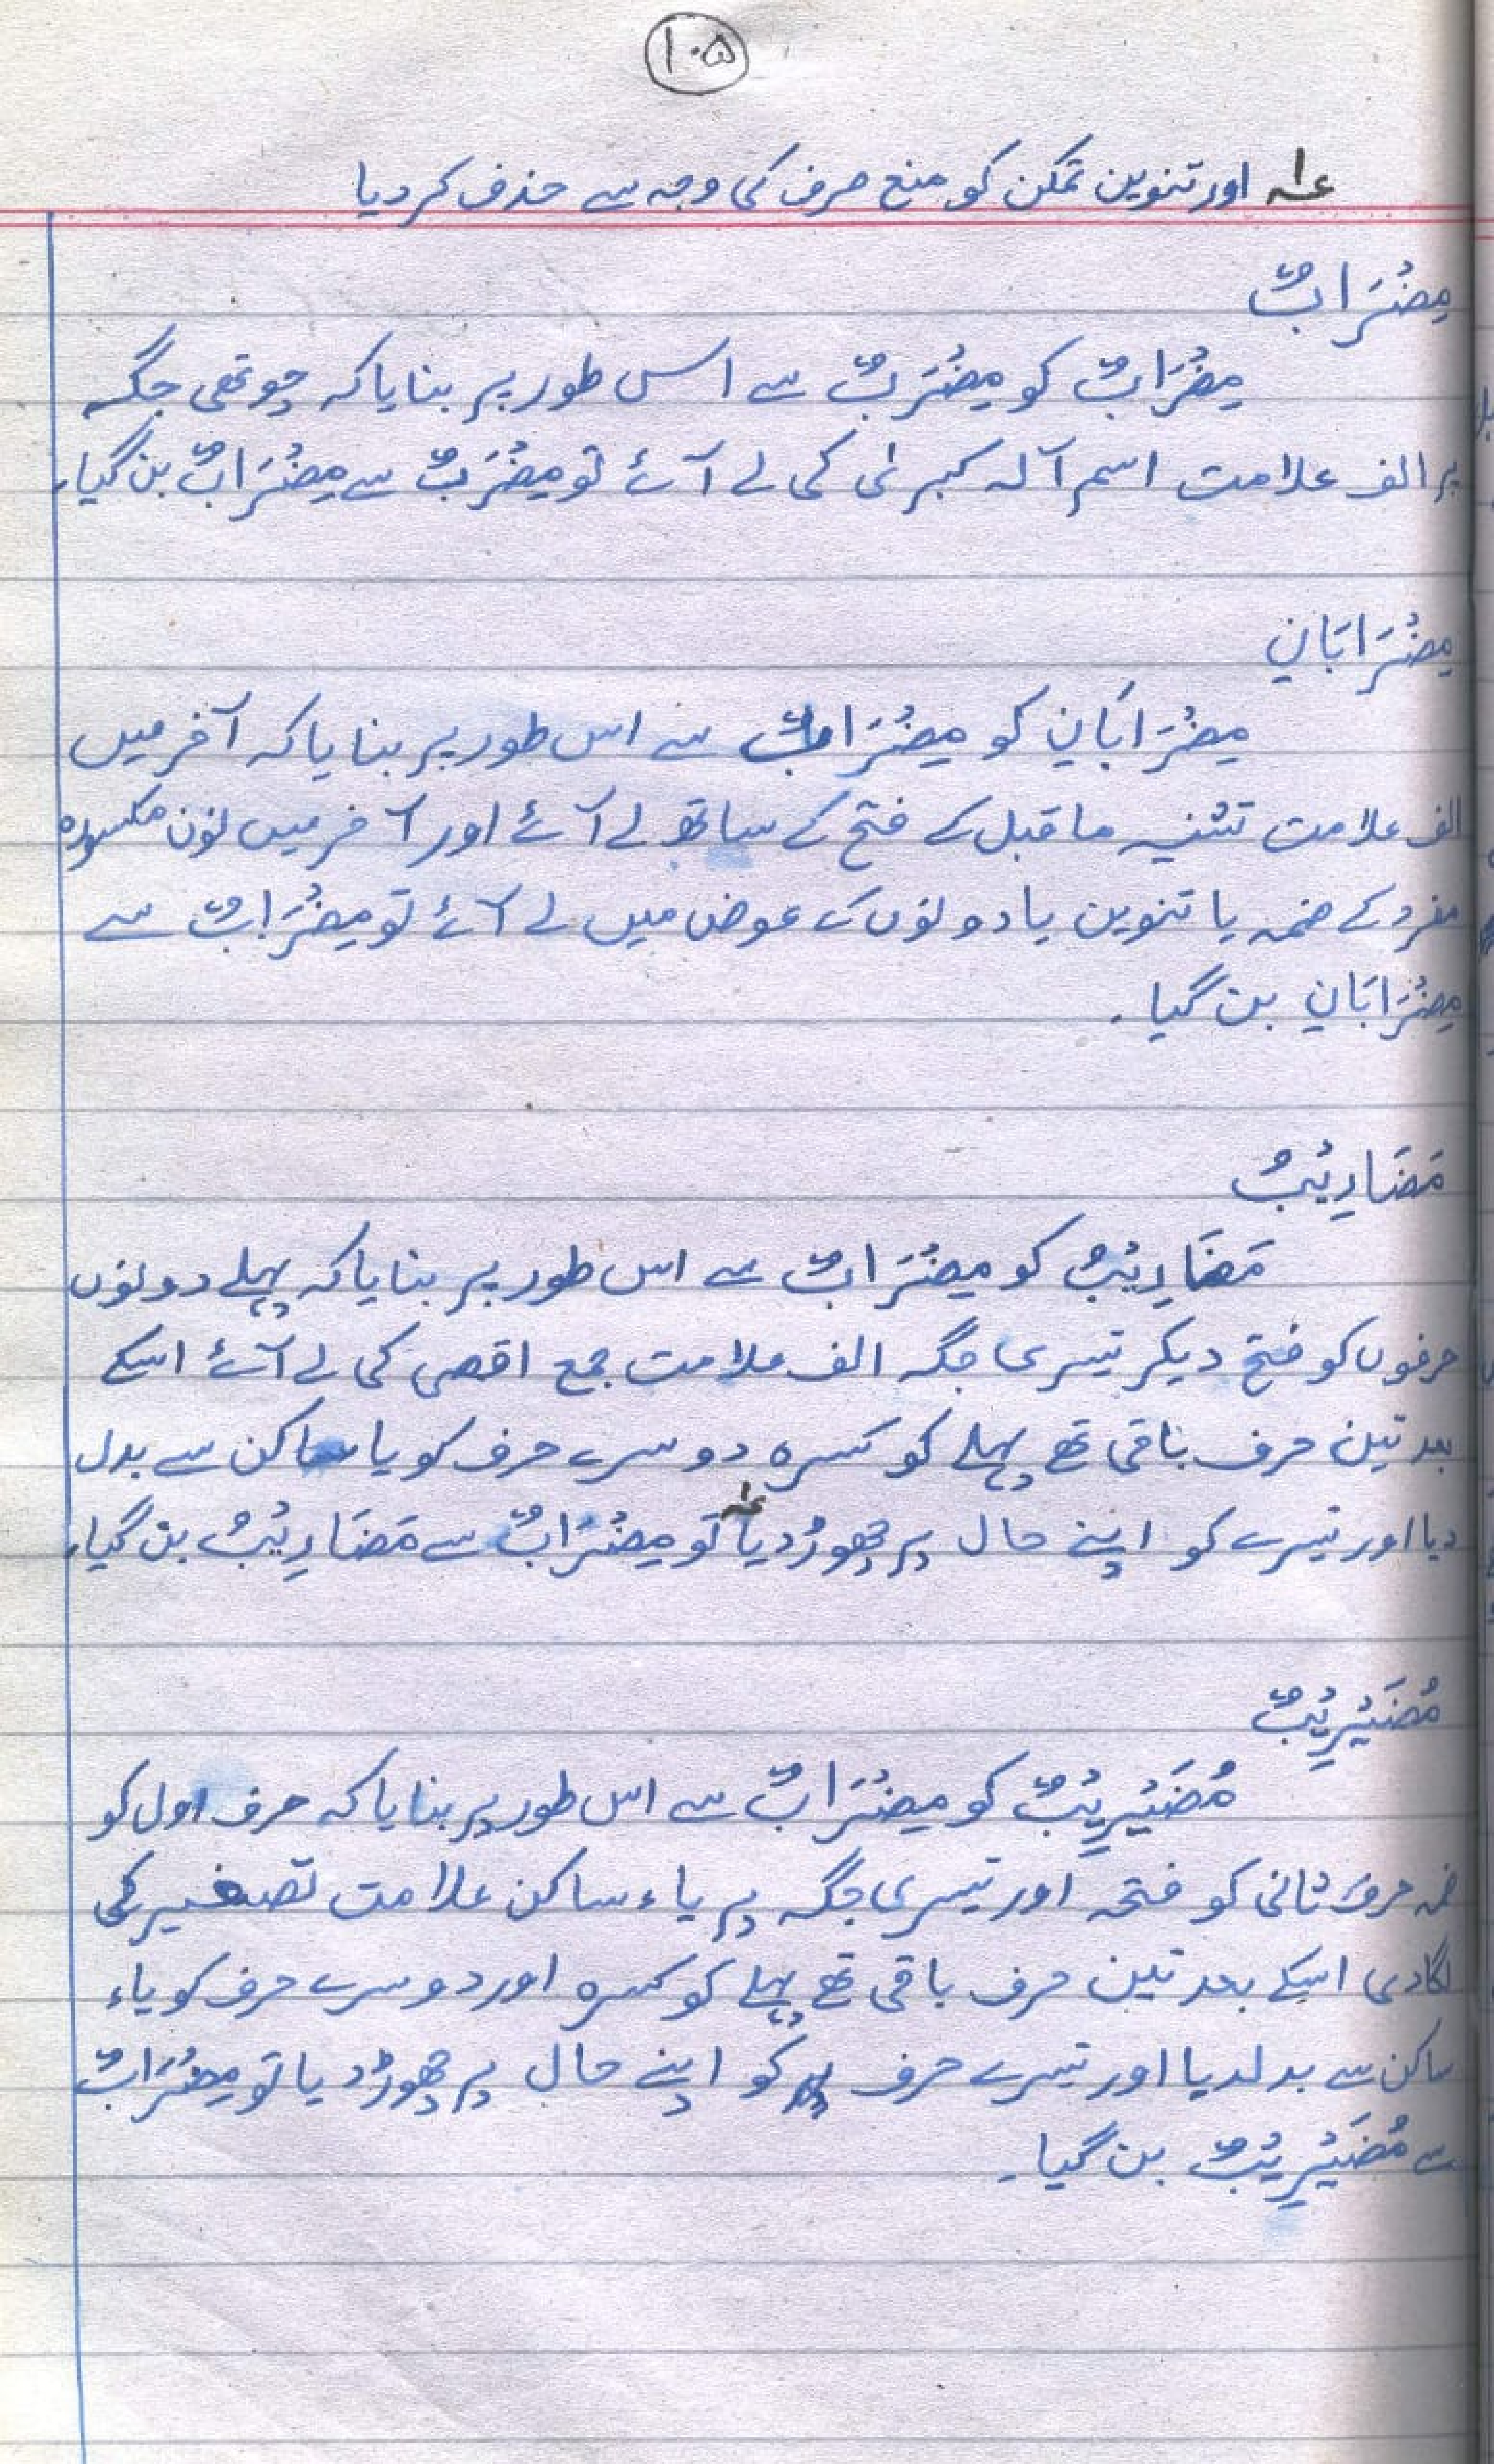 ۱۰۵
؏۱ اور تنوین تمکن کو منع صرف کی وجہ سے حذف کر دیا
مِضْرَابٌ
مِضْرَابٌ کو مِضْرَبٌ سے اس طور پر بنایا کہ چوتھی جگہ
پر الف علامت اسم آلہ کبرٰی کی لے آئے تو مِضْرَبٌ سے مِضْرَابٌ بن گیا۔
مِضْرَابَانِ
مِضْرَابَانِ کو مِضْرَابٌ سے اس طور پر بنایا کہ آخر میں
الف علامت تثنیہ ماقبل کے فتح کے ساتھ لے آئے اور آخر میں نون مکسورہ
مفرد کے ضمہ یا تنوین یا دونوں کے عوض میں لے آئے تو مِضْرَابٌ سے
مِضْرَابَانِ بن گیا۔
مَضَارِیْبُ
مَضَارِیْبُ کو مِضْرَابٌ سے اس طور پر بنایا کہ پہلے دونوں
حرفوں کو فتح دیکر تیسری جگہ الف علامت جمع اقصی کی لے آئے اسکے
بعد تین حرف باقی تھے پہلے کو کسرہ دوسرے حرف کو یا ساکن سے بدل
دیا اور تیسرے کو اپنے حال پر چھوڑ دیا ؏۱ تو مِضْرَابٌ سے مَضَارِیْبُ بن گیا۔
مُضَیْرِیْبٌ
مُضَیْرِیْبٌ کو مِضْرَابٌ سے اس طور پر بنایا کہ حرف اول کو
ضمہ حرف ثانی کو فتحہ اور تیسری جگہ پر یاء ساکن علامت تصغیر کی
لگادی اسکے بعد تین حرف باقی تھے پہلے کو کسرہ اور دوسرے حرف کو یاء
ساکن سے بدلدیا اور تیسرے حرف کو اپنے حال پر چھوڑ دیا تو مِضْرَابٌ
سے مُضَیْرِیْبٌ بن گیا۔